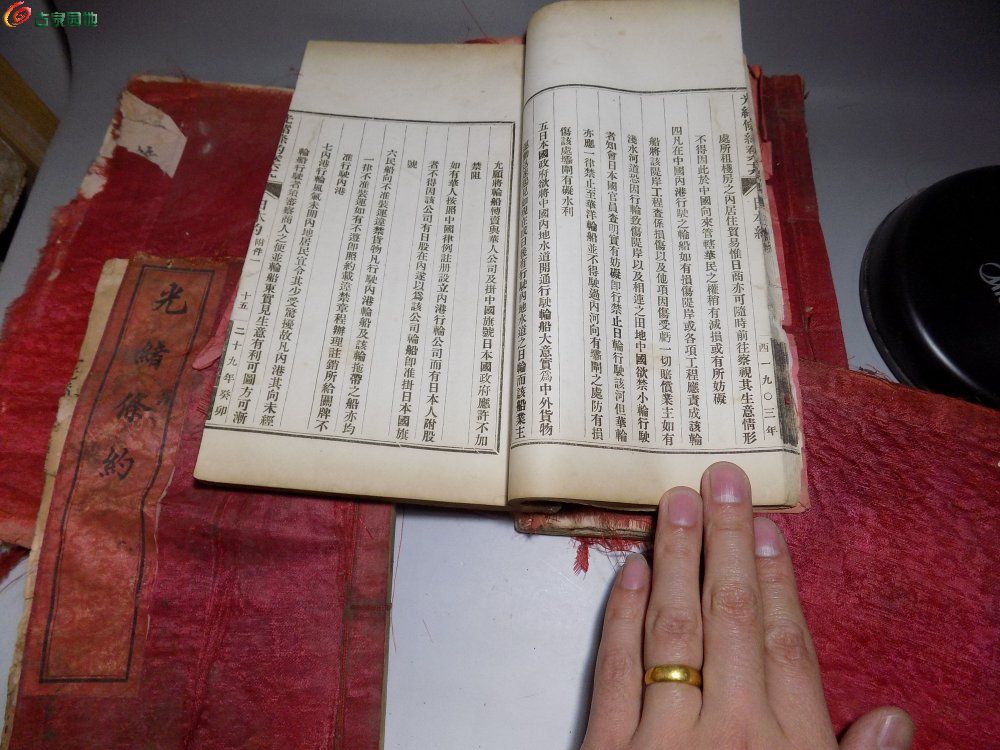 古泉园地
光緒條約
處所租棧房之內居住貿易惟日商亦可隨時前往察視其生意情形
不得因此於中國向來管轄華民之權稍有減損或有所妨礙
四凡在中國內港行駛之輪船如有損傷隄岸或各項工程應責成該輪
船將該隄岸工程查係損傷以及他項因傷受虧一切賠償業主如有
淺水河道恐因行輪致傷隄岸以及相連之田地中國欲禁小輪行駛
者知會日本國官員查明實有妨礙卽行禁止日輪行駛該河但華輪
亦應一律禁止至華洋輪船並不得駛過內河向有壩閘之處防有損
傷該處壩閘有礙水利
五日本國政府欲將中國內地水道開通行駛輪船大意實爲中外貨物
日後有行駛內地水道之日輪而該船業主
西一九〇三年
允願將輪船轉賣與華人公司及掛中國旗號日本國政府應許不加
禁阻
如有華人按照中國律例註册設立內港行輪公司而有日本人附股
者不得因該公司有日股在內遂以爲該公司輪船卽准掛日本國旗
號
六民船向不准裝運違禁貨物凡行駛內港輪船及該輪拖帶之船亦均
一律不准裝運如有不遵卽照約載違禁章程辦理註銷所給關牌不
准行駛內港
七內港行輪風氣未開內地居民宜令其少受驚擾故凡內港其向未經
輪船行駛者須審察商人之便並輪船東實見生意有利可圖方可漸
日本約 附件一
十五 二十九年癸卯